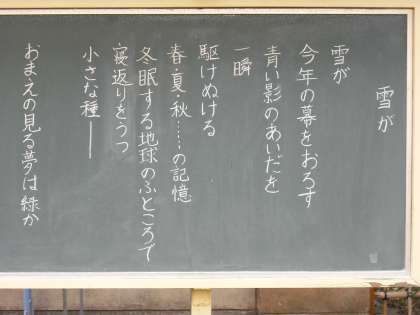 雪が
雪が
今年の幕をおろす
青い影のあいだを
一瞬
駆けぬける
春・夏・秋……の記憶
冬眠する地球のふところで
寝返りをうつ
小さな種――
おまえの見る夢は緑か